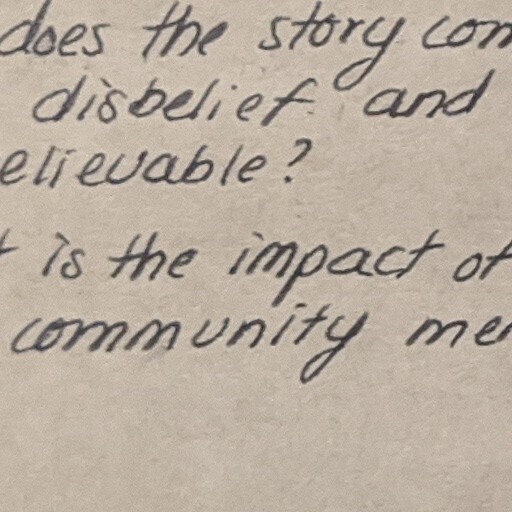 does the story com
disbelief and
elievable?
t is the impact of
community me